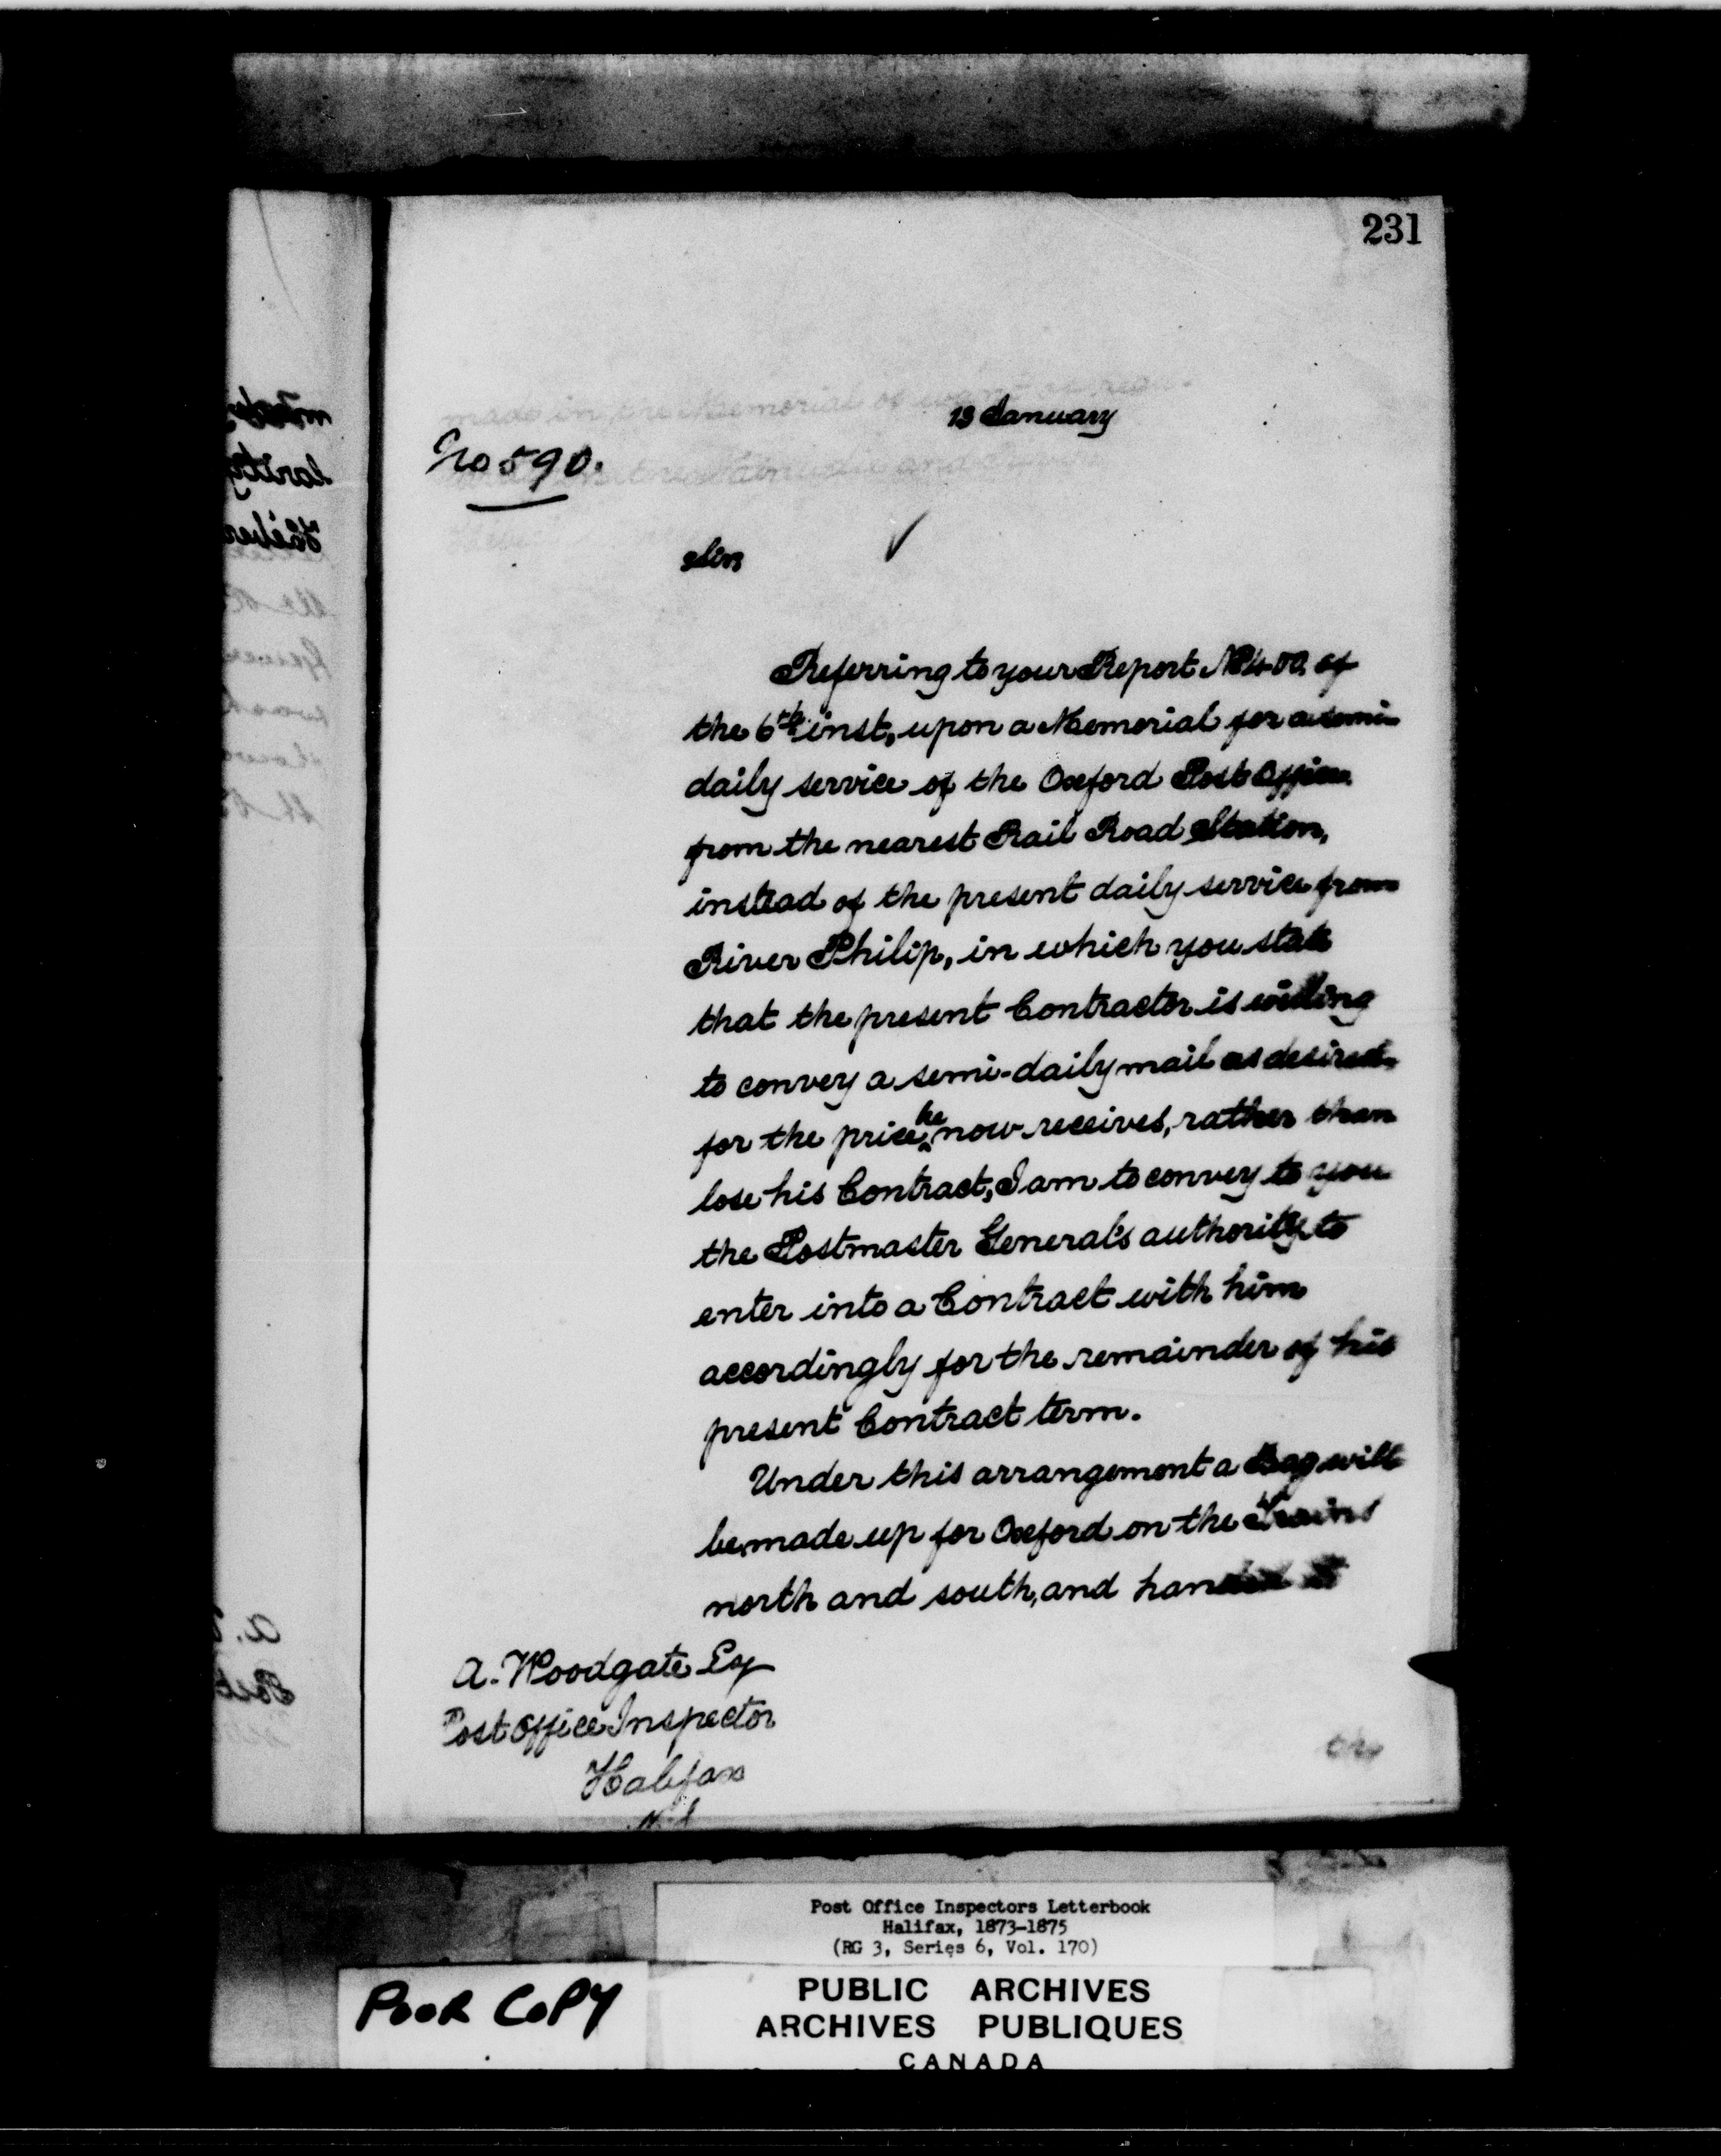 231
13 January
No 590.
Sir
Referring to your Report No 400 of
the 6th inst, upon a Memorial for a semi-
daily service of the Oxford Post Office
from the nearest Rail Road Station,
instead of the present daily service from
River Philip, in which you state
that the present Contractor is willing
to convey a semi-daily mail as desired
for the price he now receives, rather than
lose his Contract, I am to convey to you
the Postmaster General's authority to
enter into a Contract with him
accordingly for the remainder of his
present Contract term.
Under this arrangement a Bag will
be made up for Oxford on the Trains
north and south, and handed
A. Woodgate Esq
Post Office Inspector
Halifax
N.S
Post Office Inspectors Letterbook
Halifax, 1873-1875
(RG 3, Series 6, Vol. 170)
POOR COPY
PUBLIC ARCHIVES
ARCHIVES PUBLIQUES
CANADA